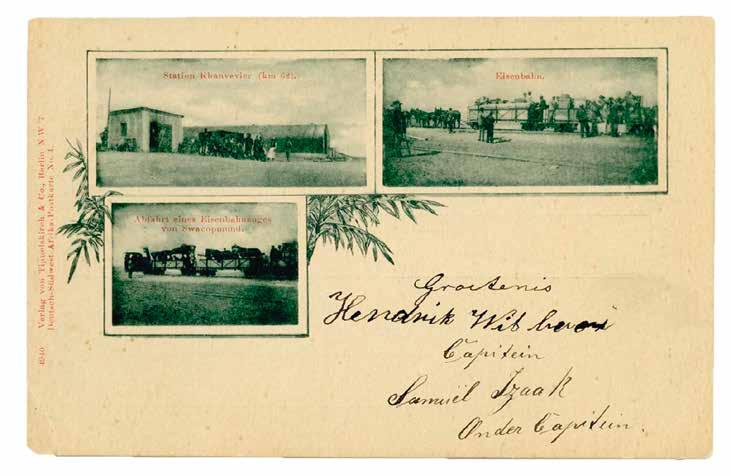 Station Khanrevier (km 62).
Eisenbahn.
Abfahrt eines Eisenbahnzuges
von Swacopmund.
4940 Verlag von Tippelskirch & Co., Berlin N.W. 7.
Deutsch-Südwest-Afrika Postkarte No. 4.
Groetenis
Hendrik Witbooi
Capitein
Samuël Izaak
Onder Capitein.